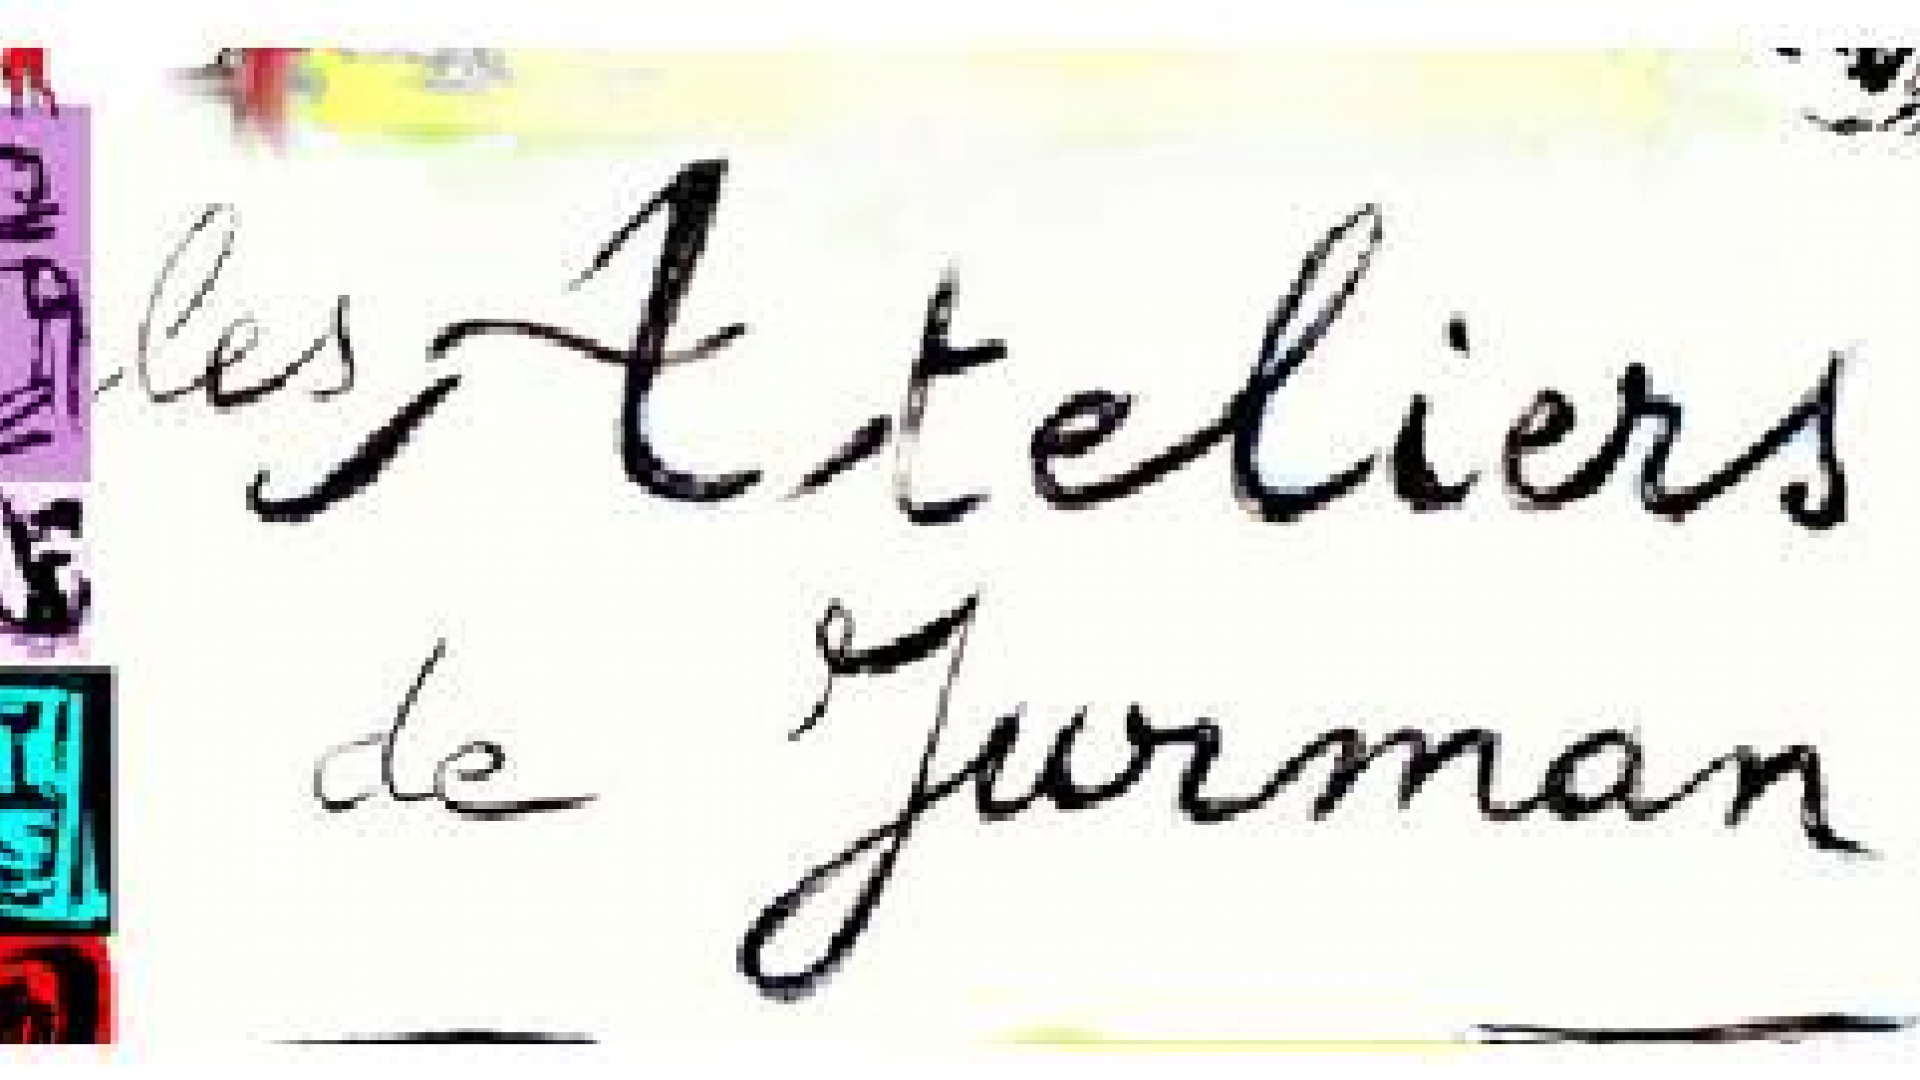 les Ateliers
de Jurman